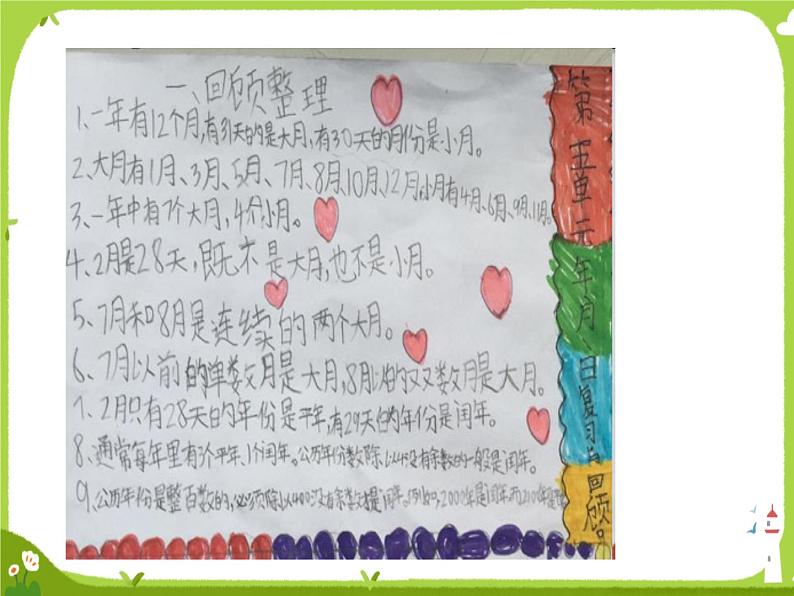 一、回顾整理
1、一年有12个月,有31天的是大月,有30天的月份是小月。
2、大月有1月、3月、5月、7月、8月、10月、12月,小月有4月、6月、9月、11月。
3、一年中有7个大月,4个小月。
4、2月是28天,既不是大月,也不是小月。
5、7月和8月是连续的两个大月。
6、7月以前的单数月是大月,8月以的双数月是大月。
7、2月只有28天的年份是平年,有29天的年份是闰年。
8、通常每年里有3个平年、1个闰年。公历年份数除以4没有余数的一般是闰年。
9、公历年份是整百数的,必须除以400没有余数才是闰年。例如,2000年是闰年,而2100年是平
第五单元年月、日复习与回顾